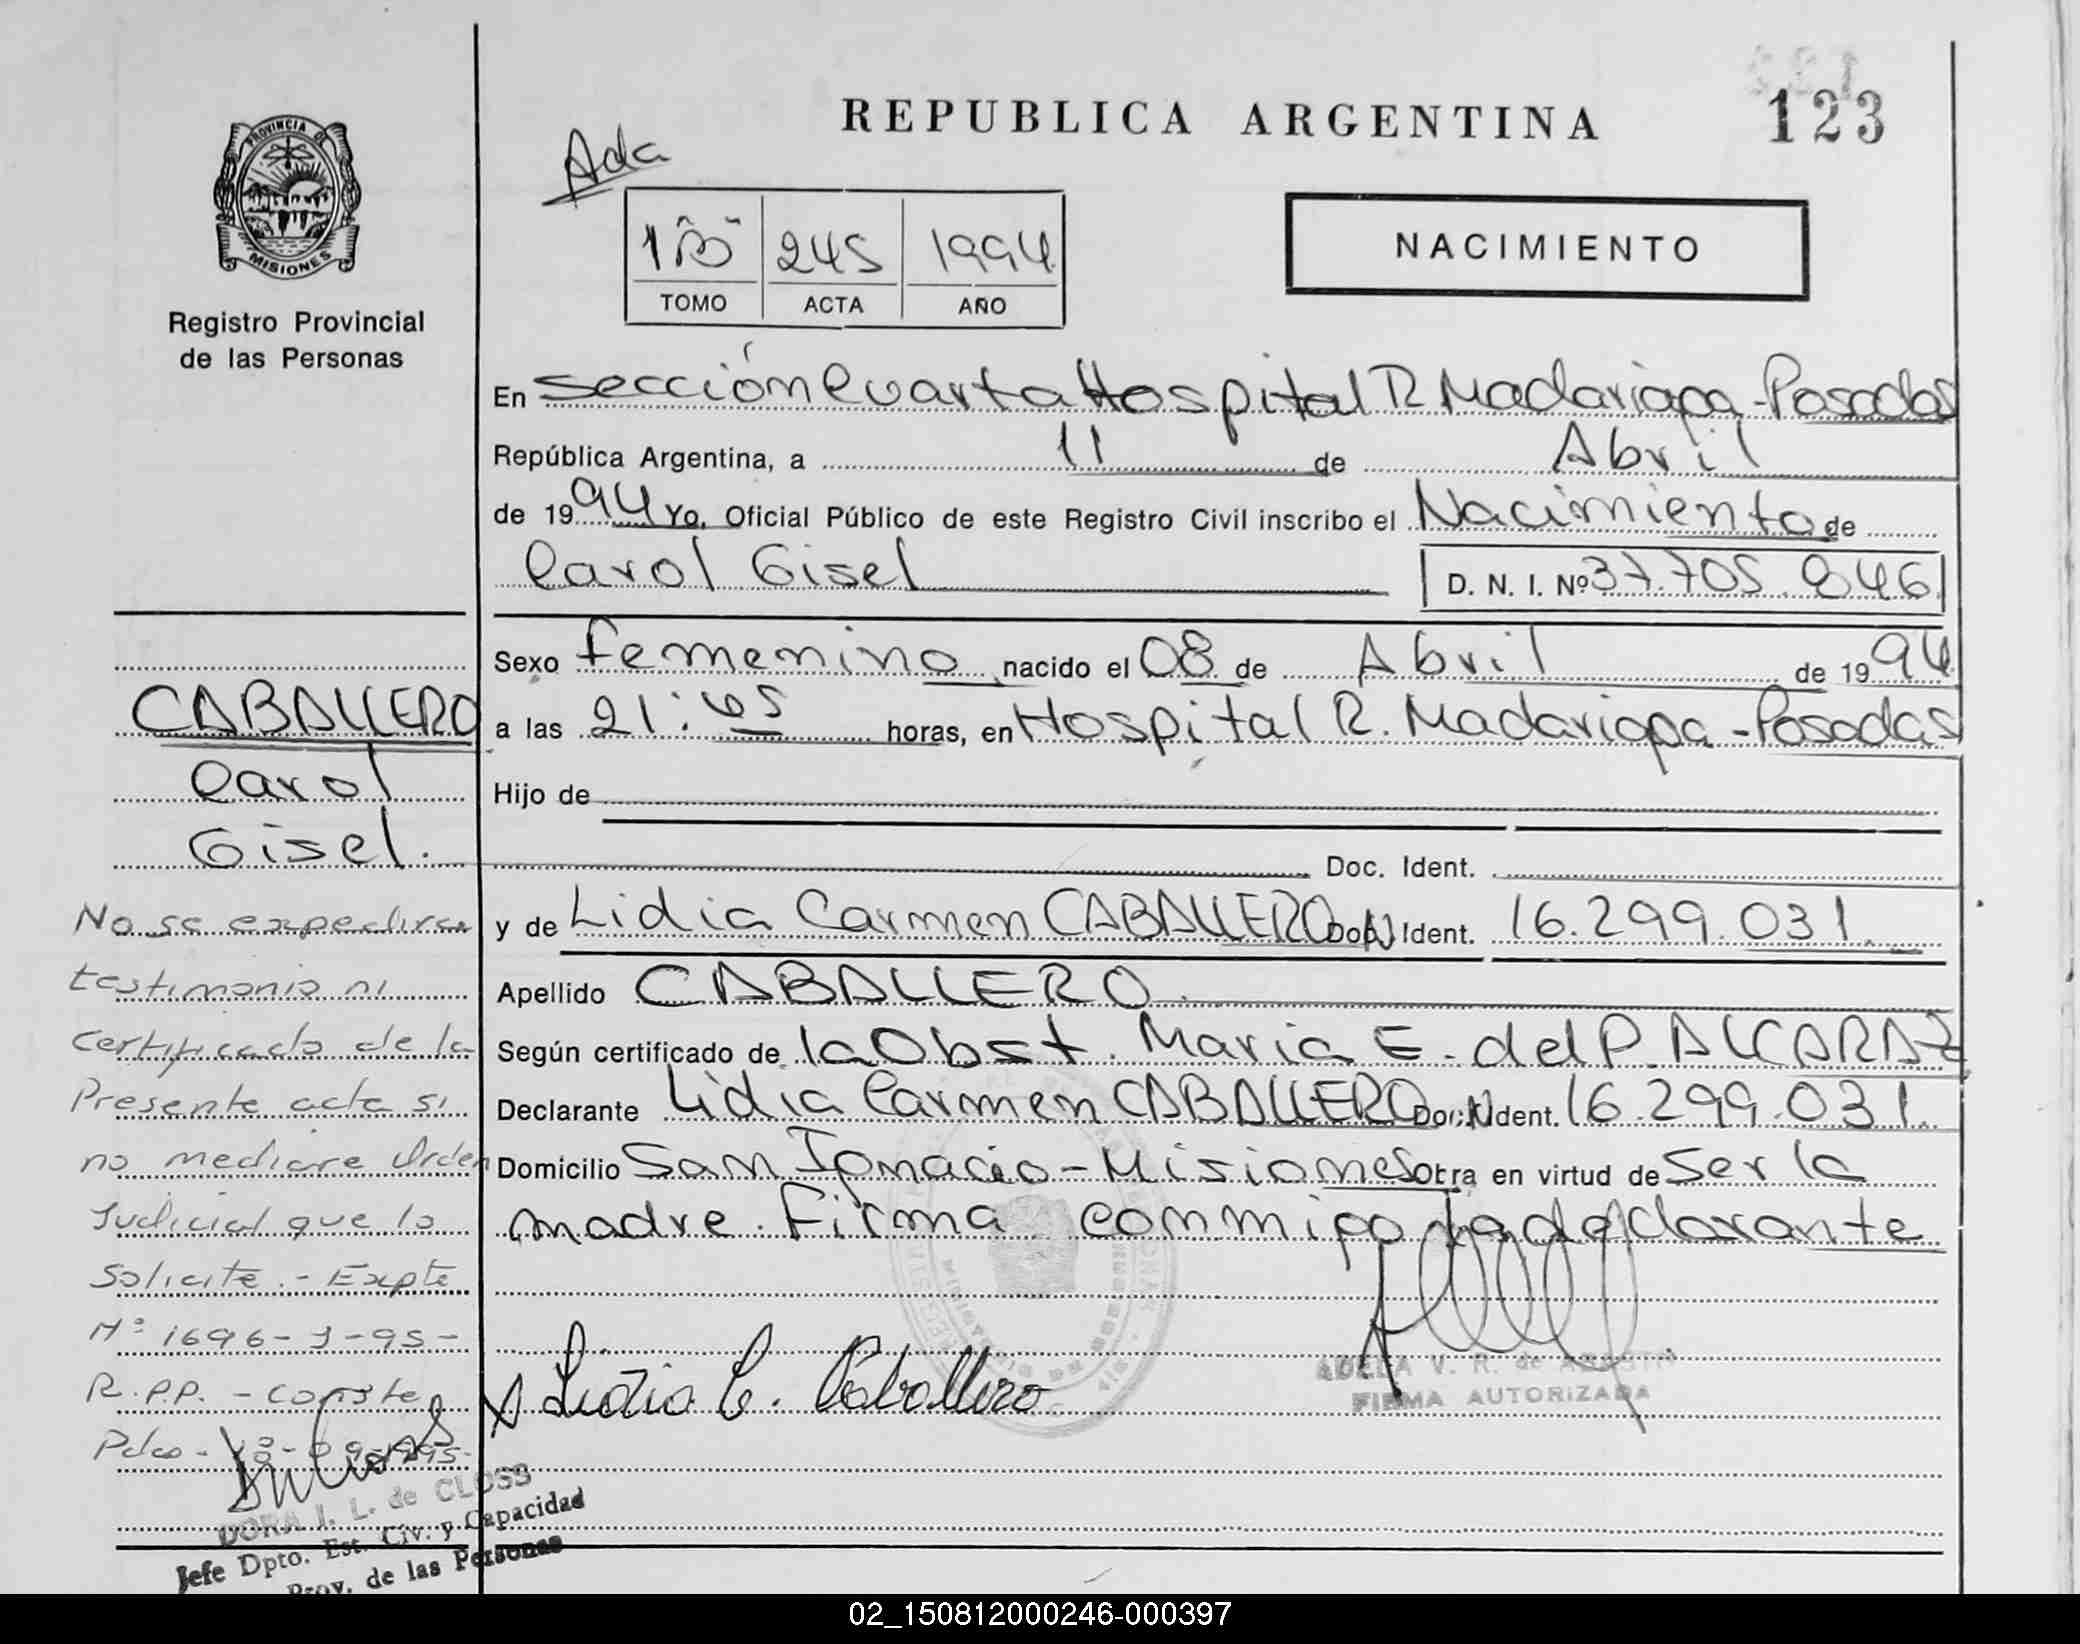 REPUBLICA ARGENTINA
123
Ada
PROVINCIA DE
MISIONES
Registro Provincial
de las Personas
245 1994
TOMO ACTA AÑO
NACIMIENTO
En Sección Cuarta Hospital R Madariaga - Posadas
República Argentina, a 11 de Abril
de 1994 Yo, Oficial Público de este Registro Civil inscribo el Nacimiento de
Carol Gisel D. N. I. Nº 37.705.846
Sexo femenino nacido el 08 de Abril de 1994
a las 21:45 horas, en Hospital R. Madariaga - Posadas
Hijo de
Doc. Ident.
y de Lidia Carmen CABALLERO Doc. Ident. 16.299.031
Apellido CABALLERO
Según certificado de la Obst. Maria E. del P. ALCARAZ
Declarante Lidia Carmen CABALLERO Doc. Ident. 16.299.031
Domicilio San Ignacio - Misiones Obra en virtud de Ser la
madre. Firma conmigo la declarante
Lidia C. Caballero
ADELA V. R. de
FIRMA AUTORIZADA
CABALLERO
Carol
Gisel.
No se expedira
testimonio ni
certificado de la
Presente acta si
no mediare Orden
Judicial que lo
Solicite.- Expte
Nº 1696-J-95-
R.P.P. - Conste
Pdas -
DORA I. L. de CLOSS
Jefe Dpto. Est. Civ. y Capacidad
Prov. de las Personas
02_150812000246-000397